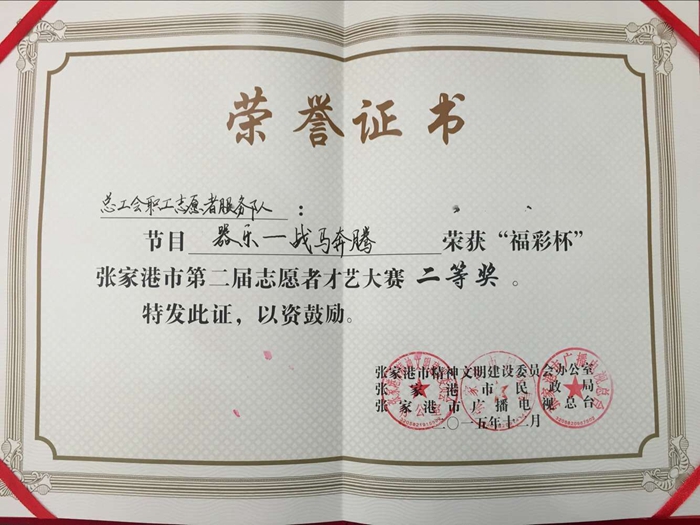 荣誉证书
总工会职工志愿者服务队：
节目器乐—战马奔腾荣获“福彩杯”
张家港市第二届志愿者才艺大赛二等奖。
特发此证，以资鼓励。
张家港市精神文明建设委员会办公室
张家港市民政局
张家港市广播电视总台
二〇一五年十二月